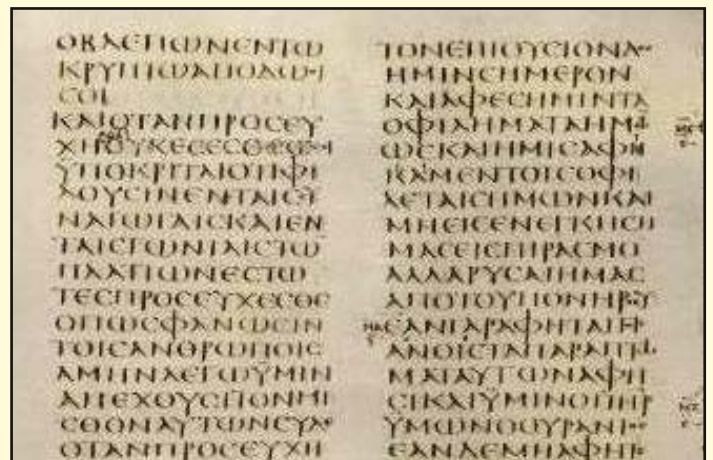 ΟΒΛΕΠΩΝΕΝΤΩ
ΚΡΥΠΤΩΑΠΟΔΩϹΙ
ϹΟΙ
ΚΑΙΟΤΑΝΠΡΟϹΕΥ
ΧΗΟΥΚΕϹΕϹΘΕΩϹΟΙ
ΥΠΟΚΡΙΤΑΙΟΤΙΦΙ
ΛΟΥϹΙΝΕΝΤΑΙϹϹΥ
ΝΑΓΩΓΑΙϹΚΑΙΕΝ
ΤΑΙϹΓΩΝΙΑΙϹΤΩ
ΠΛΑΤΙΩΝΕϹΤΩ
ΤΕϹΠΡΟϹΕΥΧΕϹΘΕ
ΟΠΩϹΦΑΝΩϹΙΝ
ΤΟΙϹΑΝΘΡΩΠΟΙϹ
ΑΜΗΝΛΕΓΩΥΜΙΝ
ΑΠΕΧΟΥϹΙΤΟΝΜΙ
ϹΘΟΝΑΥΤΩΝϹΥΔΕ
ΟΤΑΝΠΡΟϹΕΥΧΗ
ΤΟΝΕΠΙΟΥϹΙΟΝΔΟϹ
ΗΜΙΝϹΗΜΕΡΟΝ
ΚΑΙΑΦΕϹΗΜΙΝΤΑ
ΟΦΙΛΗΜΑΤΑΗΜΩ
ΩϹΚΑΙΗΜΙϹΑΦΗ
ΚΑΜΕΝΤΟΙϹΟΦΙ
ΛΕΤΑΙϹΗΜΩΝΚΑΙ
ΜΗΕΙϹΕΝΕΓΚΗϹΗ
ΜΑϹΕΙϹΠΙΡΑϹΜΟ
ΑΛΛΑΡΥϹΑΙΗΜΑϹ
ΑΠΟΤΟΥΠΟΝΗΡΟΥ
ΕΑΝΓΑΡΑΦΗΤΑΙΤΟΙϹ
ΑΝΟΙϹΤΑΠΑΡΑΠΤΩ
ΜΑΤΑΑΥΤΩΝΑΦΗ
ϹΙΚΑΙΥΜΙΝΟΠΗΡ
ΥΜΩΝΟΟΥΡΑΝΙΟϹ
ΕΑΝΔΕΜΗΑΦΗΤΕ